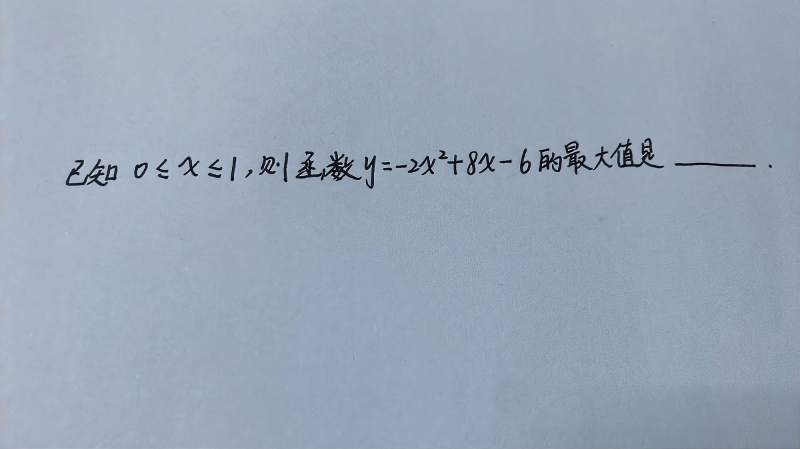 已知 0≤x≤1,则函数y=-2x²+8x-6的最大值是______.